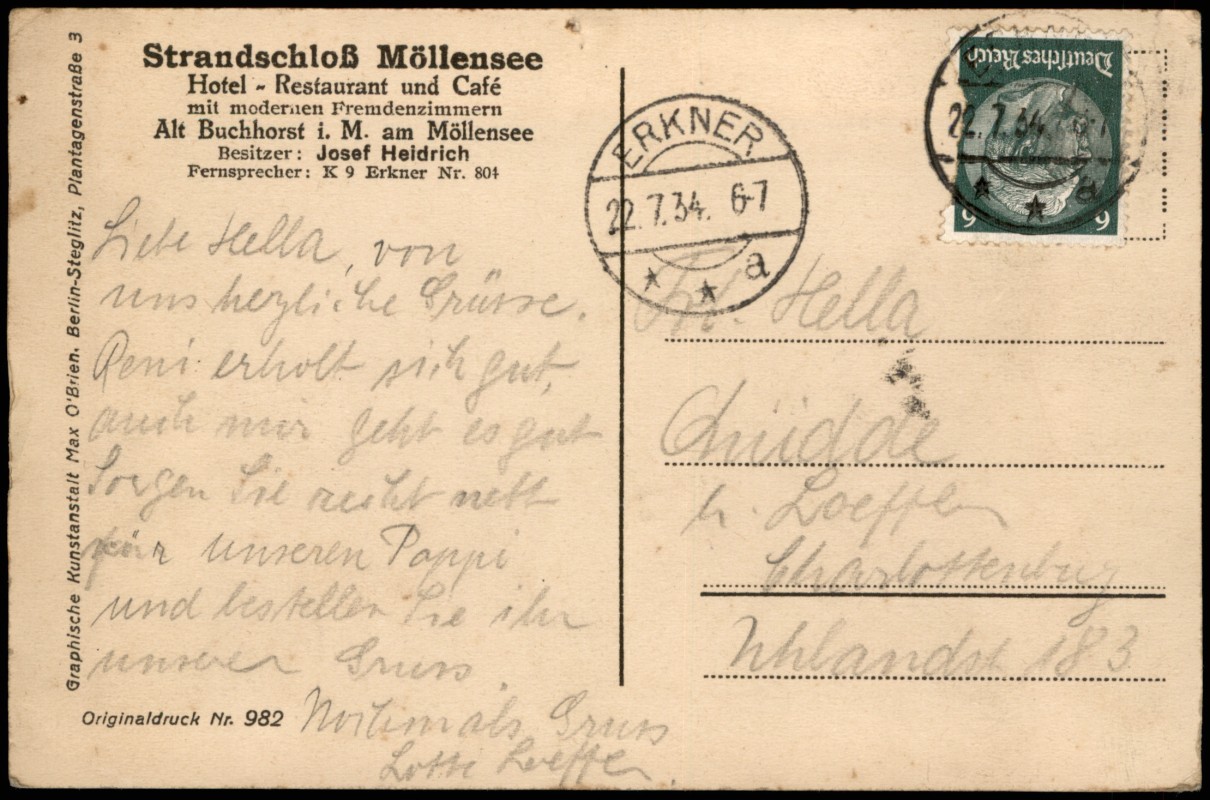 Strandschloß Möllensee
Hotel - Restaurant und Café
mit modernen Fremdenzimmern
Alt Buchhorst i. M. am Möllensee
Besitzer: Josef Heidrich
Fernsprecher: K 9 Erkner Nr. 804
Graphische Kunstanstalt Max O'Brien, Berlin-Steglitz, Plantagenstraße 3
Liebe Hella, von
uns herzliche Grüsse.
Reni erholt sich gut,
auch mir geht es gut
Sorgen Sie recht nett
für unseren Poppi
und bestellen Sie ihm
unseren Gruss.
Nochmals Gruss
Lotte Loeffler.
Originaldruck Nr. 982
ERKNER
22.7.34. 6-7
a
Deutsches Reich
6 6
22.7.34. 6-7
a
Frl. Hella
b. Loeffler
Charlottenburg
Uhlandst 183